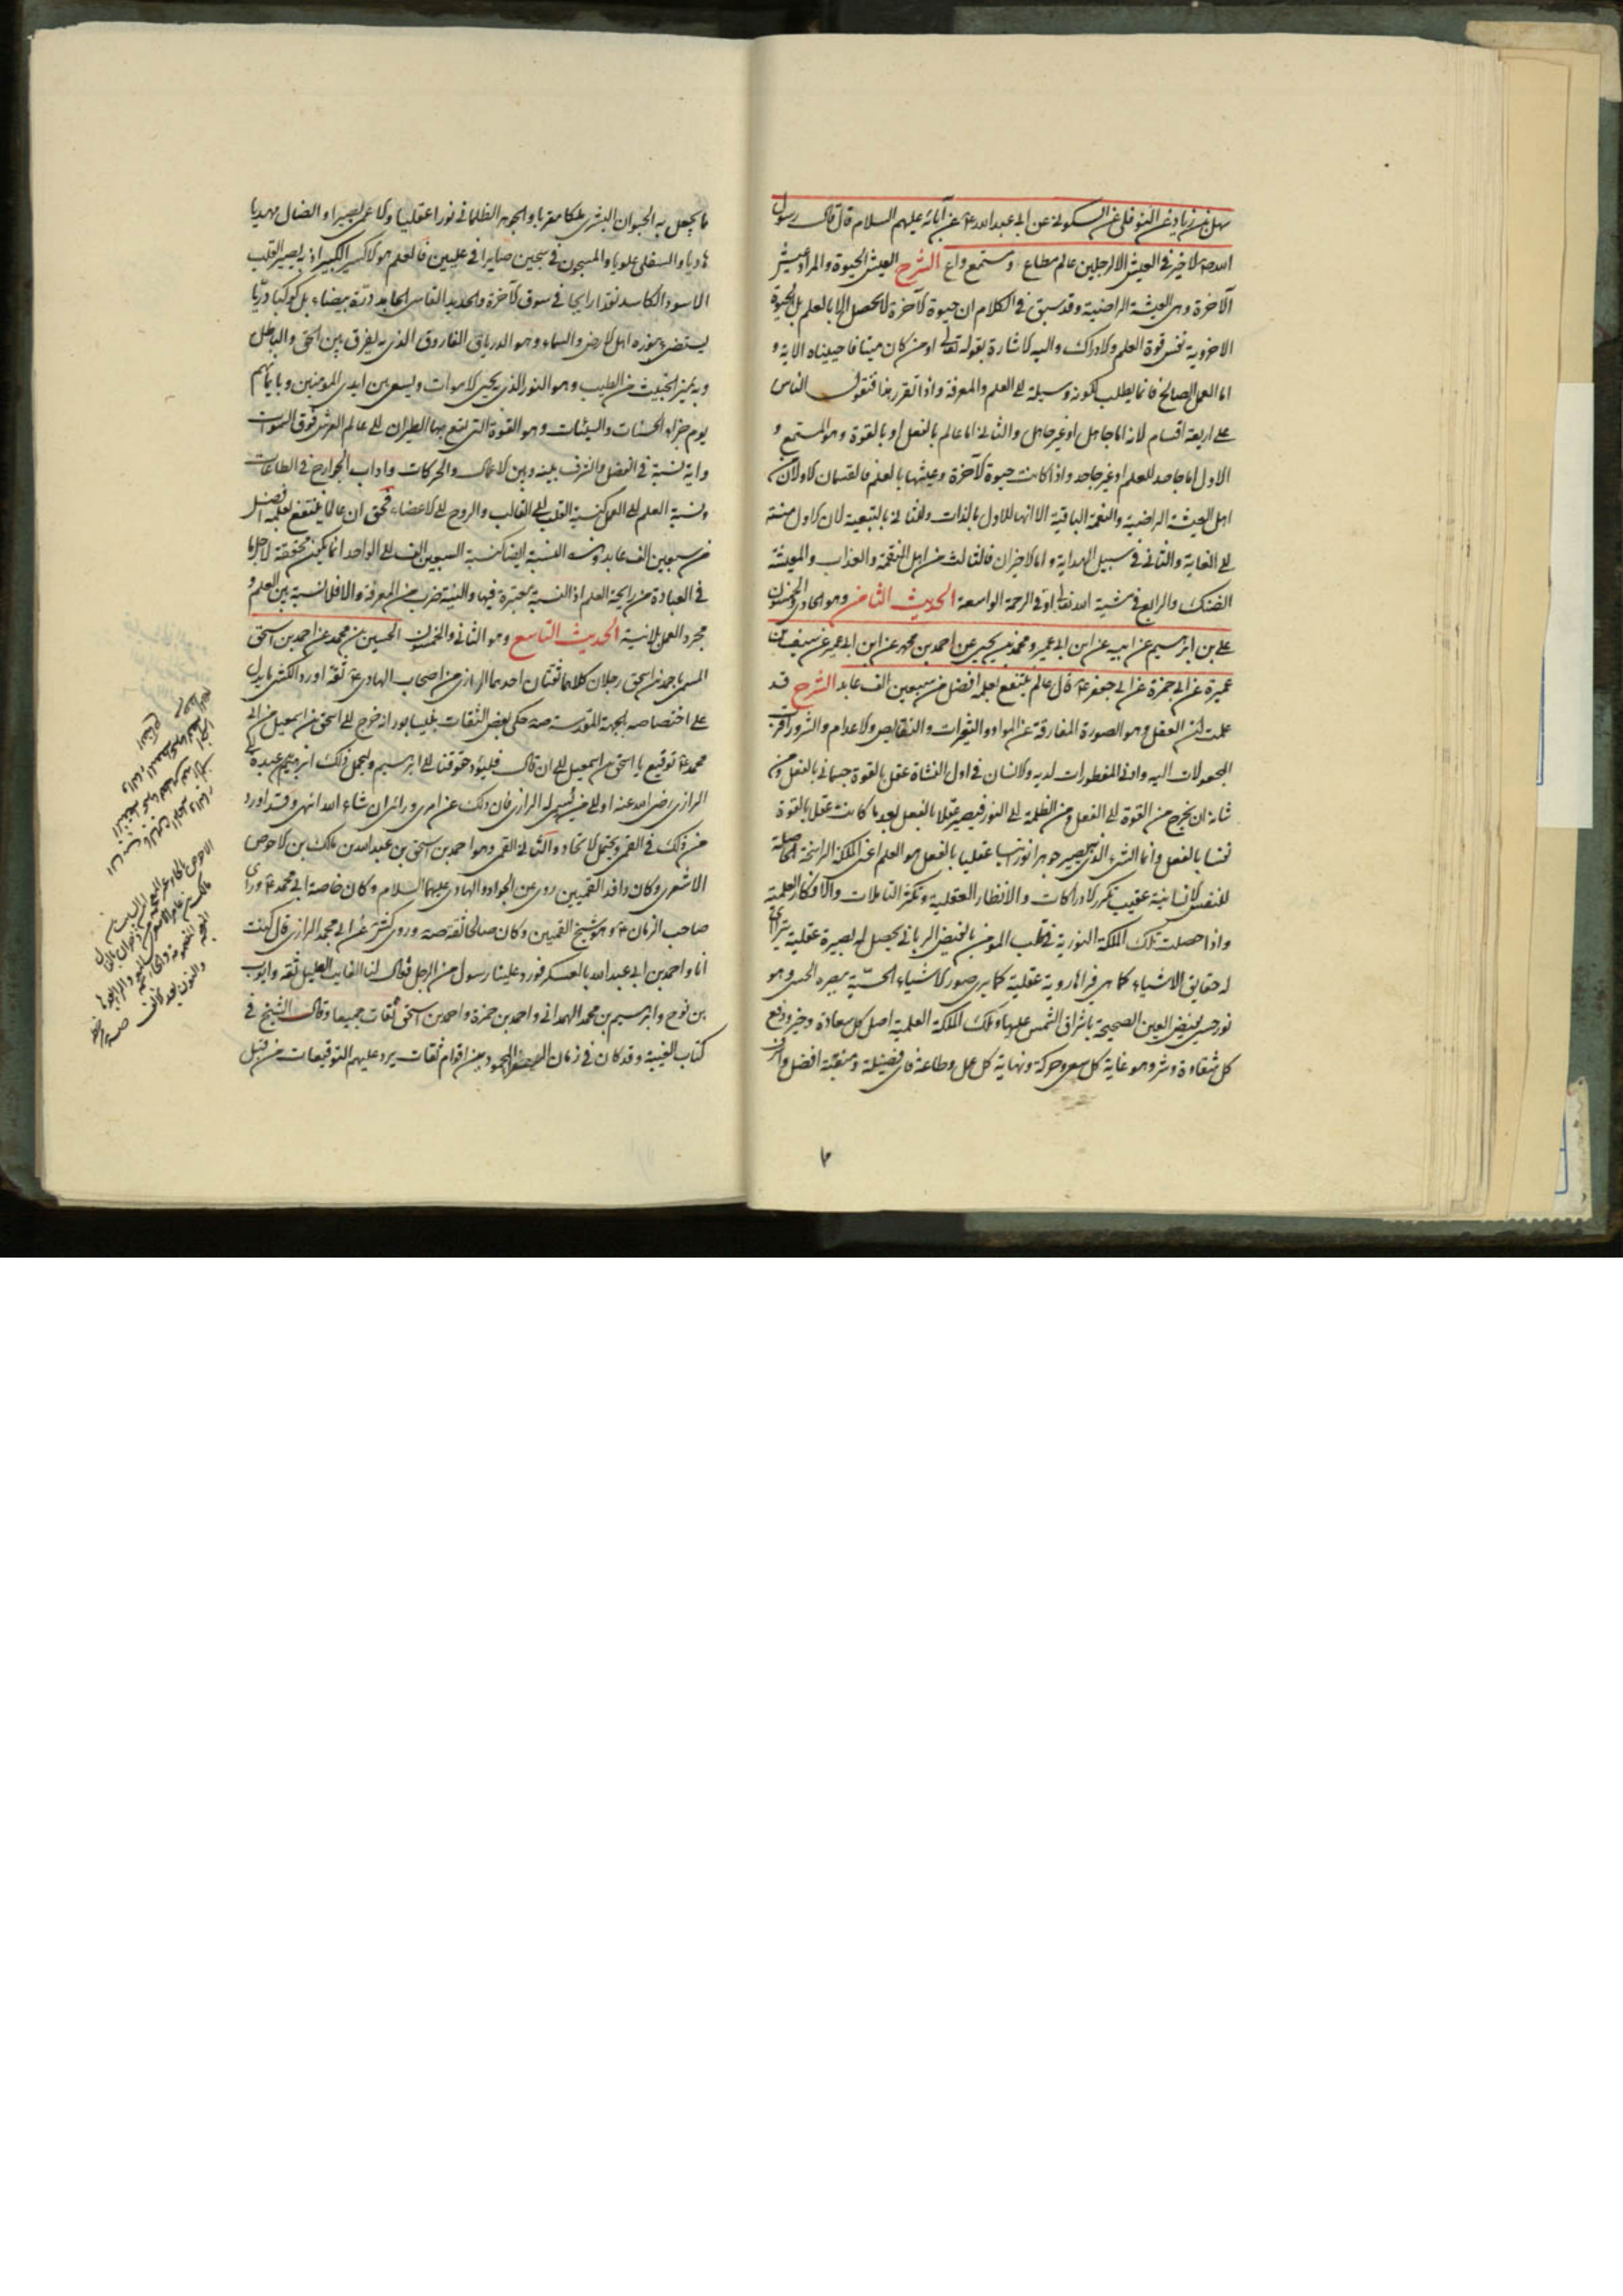 سهل بن زياد عن النوفلي عن السكوني عن ابي عبد الله ع عن آبائه عليهم السلام قال قال رسول
الله ص لا خير في العيش الا لرجلين عالم مطاع او مستمع واع الشرح العيش الحيوة والمراد عيش
الآخرة وهي العيشة الراضية وقد سبق في الكلام ان حيوة الآخرة لا يحصل الا بالعلم بل الحيوة
الاخروية نفس قوة العلم والادراك واليه الاشارة بقوله تعالى او من كان ميتا فاحييناه الاية و
اما العمل الصالح فانما يطلب لكونه وسيلة الى العلم والمعرفة واذا تقرر هذا فنقول الناس
على اربعة اقسام لانه اما جاهل او غير جاهل والثاني اما عالم بالفعل او بالقوة وهو المستمع و
الاول اما جاحد للعلم او غير جاحد واذا كانت حيوة الآخرة وعيشها بالعلم فالقسمان الاولان
اهل العيشة الراضية والنعمة الباقية الا انها للاول بالذات وللثاني بالتبعية لان الاول منته
الى الغاية والثاني في سبيل الهداية واما الاخيران فالثالث من اهل النقمة والعذاب والمعيشة
الضنك والرابع في مشية الله تعالى او في الرحمة الواسعة الحديث الثامن وهو الحادي والخمسون
علي بن ابرهيم عن ابيه عن ابن ابي عمير ومحمد بن يحيى عن احمد بن محمد عن ابن ابي عمير عن سيف بن
عميرة عن ابي حمزة عن ابي جعفر ع قال عالم ينتفع بعلمه افضل من سبعين الف عابد الشرح قد
علمت ان العقل وهو الصورة المفارقة عن المواد والتغيرات والنقايص والاعدام والشرور اقرب
المجعولات اليه وادنى المفطورات لديه والانسان في اول النشاة عقل بالقوة جسماني بالفعل ومن
شانه ان يخرج من القوة الى الفعل ومن الظلمة الى النور فيصير عقلا بالفعل بعد ما كانت عقلا بالقوة
نفسا بالفعل وانما الشيء الذي به يصير جوهرا نورانيا عقليا بالفعل هو العلم اعني الملكة الراسخة الحاصلة
للنفس الانسانية عقيب تكرر الادراكات والانظار العقلية وتكثر التاملات والافكار العلمية
واذا حصلت تلك الملكة النورية في قلب المومن بالفيض الرباني يحصل له بصيرة عقلية يترائ
له حقايق الاشياء كما هي فيراها روية عقلية كما يرى صور الاشياء الحسية ببصره الحسي وهو
نور حسي يفيض العين الصحيحة باشراق الشمس عليها وتلك الملكة العلمية اصل كل سعادة وخير ودفع
كل شقاوة وشر وهو غاية كل سعي وحركة ونهاية كل عمل وطاعة فاي فضيلة ومنقبة افضل واشرف
ما يجعل به الحيوان البشري ملكا مقربا والجوهر الظلماني نورا عقليا والاعمى بصيرا والضال مهديا
هاديا والسفلي علويا والمسجون في سجين صايرا في عليين فالعلم هو الاكسير الكبير اذ به يصير القلب
الاسود الكاسد نقدا رايجا في سوق الآخرة والحديد القاسي الجامد درّة بيضاء بل كوكبا دريّا
يستضيء بنوره اهل الارض والسماء وهو الدرياق الفاروق الذي به يفرق بين الحق والباطل
وبه يميز الخبيث من الطيب وهو النور الذي يحيى الاموات ويسعى بين ايدي المومنين وبايمانهم
يوم جزاء الحسنات والسيئات وهو القوة التي يقع بها الطيران الى عالم العرش فوق السموات
واية نسبة في الفضل والشرف بينه وبين الاعمال والحركات واداب الجوارح في الطاعات
ونسبة العلم الى العمل كنسبة القلب الى القالب والروح الى الاعضاء فحق ان عالما ينتفع بعلمه افضل
من سبعين الف عابد وهذه النسبة ايضا كنسبة السبعين الف الى الواحد انما يكون متحققة لاجل ما
في العبادة من رايحة العلم اذ النسبة معتبرة فيها والنية ضرب من المعرفة والا فلا نسبة بين العلم و
مجرد العمل بلا نية الحديث التاسع وهو الثاني والخمسون الحسين بن محمد عن احمد بن اسحق
المسمى باحمد بن اسحق رجلان كلاهما ثقتان احدهما الرازي من اصحاب الهادي ع ثقة اورد الكشي ما يدل
على اختصاصه بالجهة المقدسة صه حكى بعض الثقات بنيسابور انه خرج الى اسحق بن اسمعيل من ابي
محمد ع توقيع يا اسحق بن اسمعيل الى ان قال فليؤد حقوقنا الى ابرهيم وليحمل ذلك ابرهيم بن عبدة الى
الرازي رضي الله عنه او الى من يسمى له الرازي فان ذلك عن امري ورائي ان شاء الله انتهى وقد اورد
من ذلك في القمي ويحتمل الاتحاد والثاني القمي وهو احمد بن اسحق بن عبد الله بن مالك بن الاحوص
الاشعري وكان وافد القميين روى عن الجواد والهادي عليهما السلام وكان خاصة ابي محمد ع وراى
صاحب الزمان ع وهو شيخ القميين وكان صالحا ثقة صه وروى كش عن ابي محمد الرازي قال كنت
انا واحمد بن ابي عبد الله بالعسكر فورد علينا رسول من الرجل فقال لنا الغايب العليل ثقة وايوب
بن نوح وابرهيم بن محمد الهمداني واحمد بن حمزة واحمد بن اسحق ثقات جميعا وقال الشيخ في
كتاب الغيبة وقد كان في زمان السفراء المحمودين اقوام ثقات يرد عليهم التوقيعات من قبل